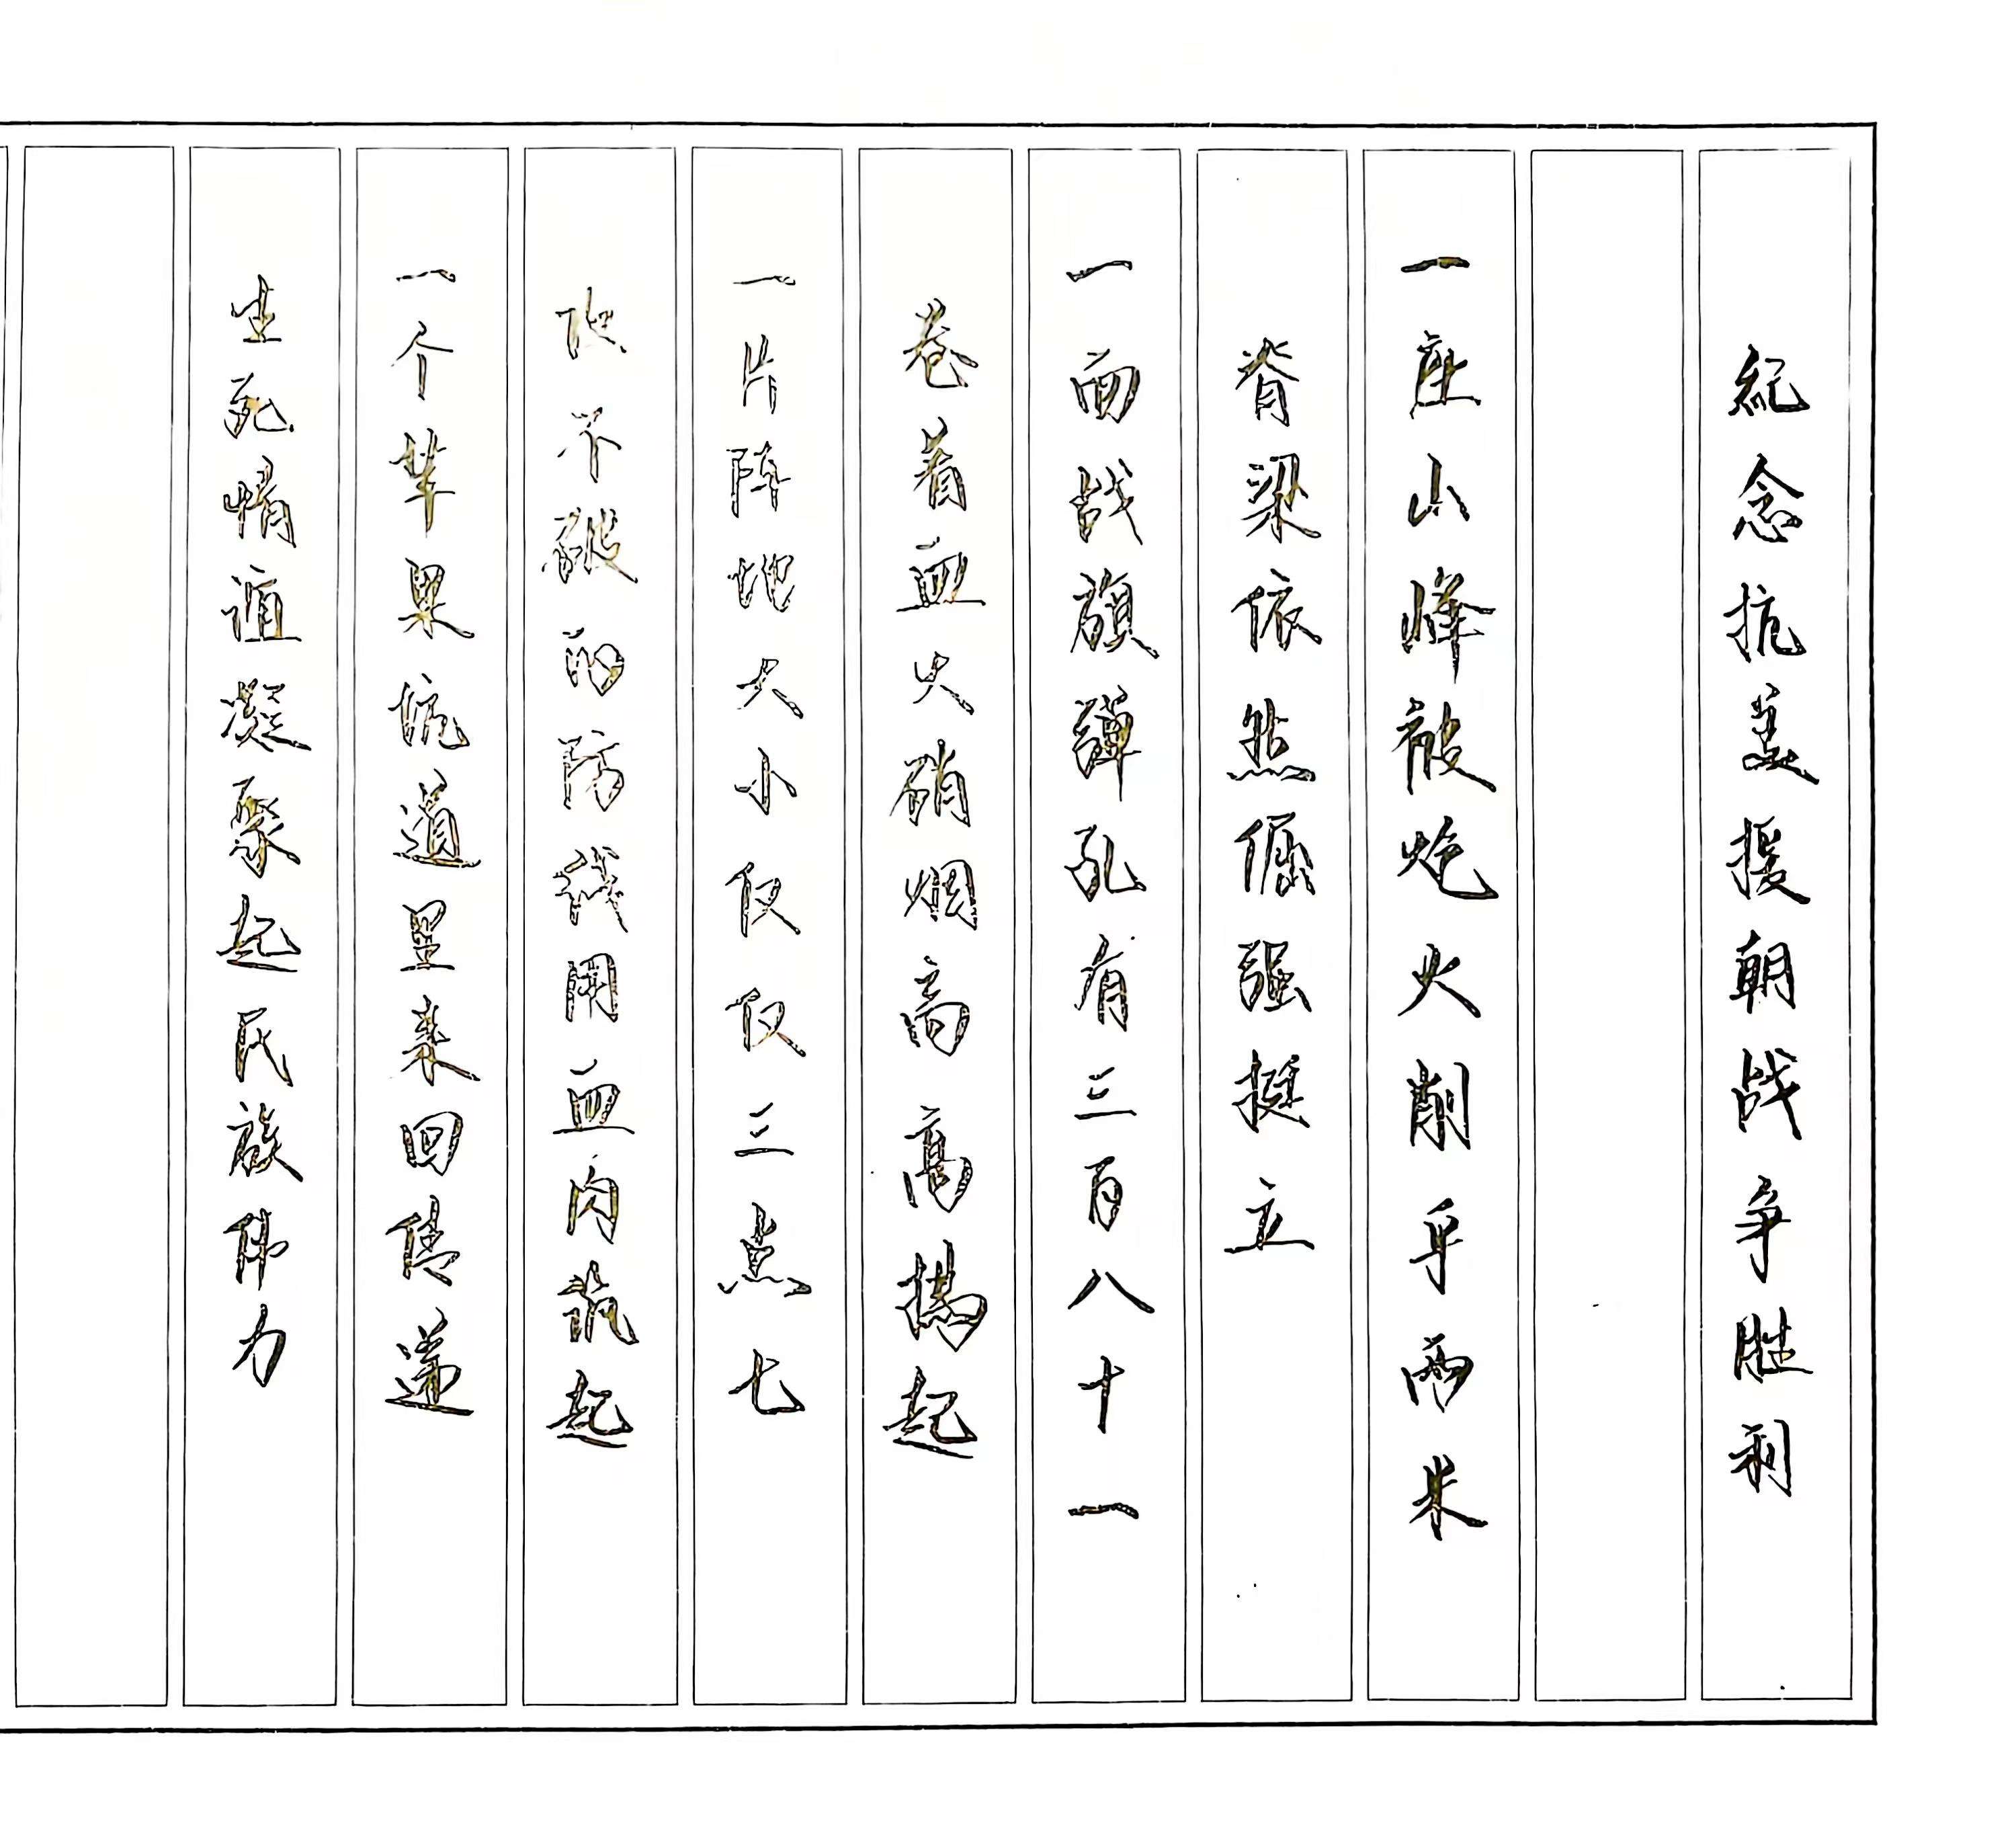 纪念抗美援朝战争胜利
一座山峰被炮火削平两米
脊梁依然倔强挺立
一面战旗弹孔有三百八十一
卷着血火硝烟高高扬起
一片阵地大小仅仅三点七
攻不破的防线用血肉筑起
一个苹果坑道里来回传递
生死情谊凝聚起民族伟力